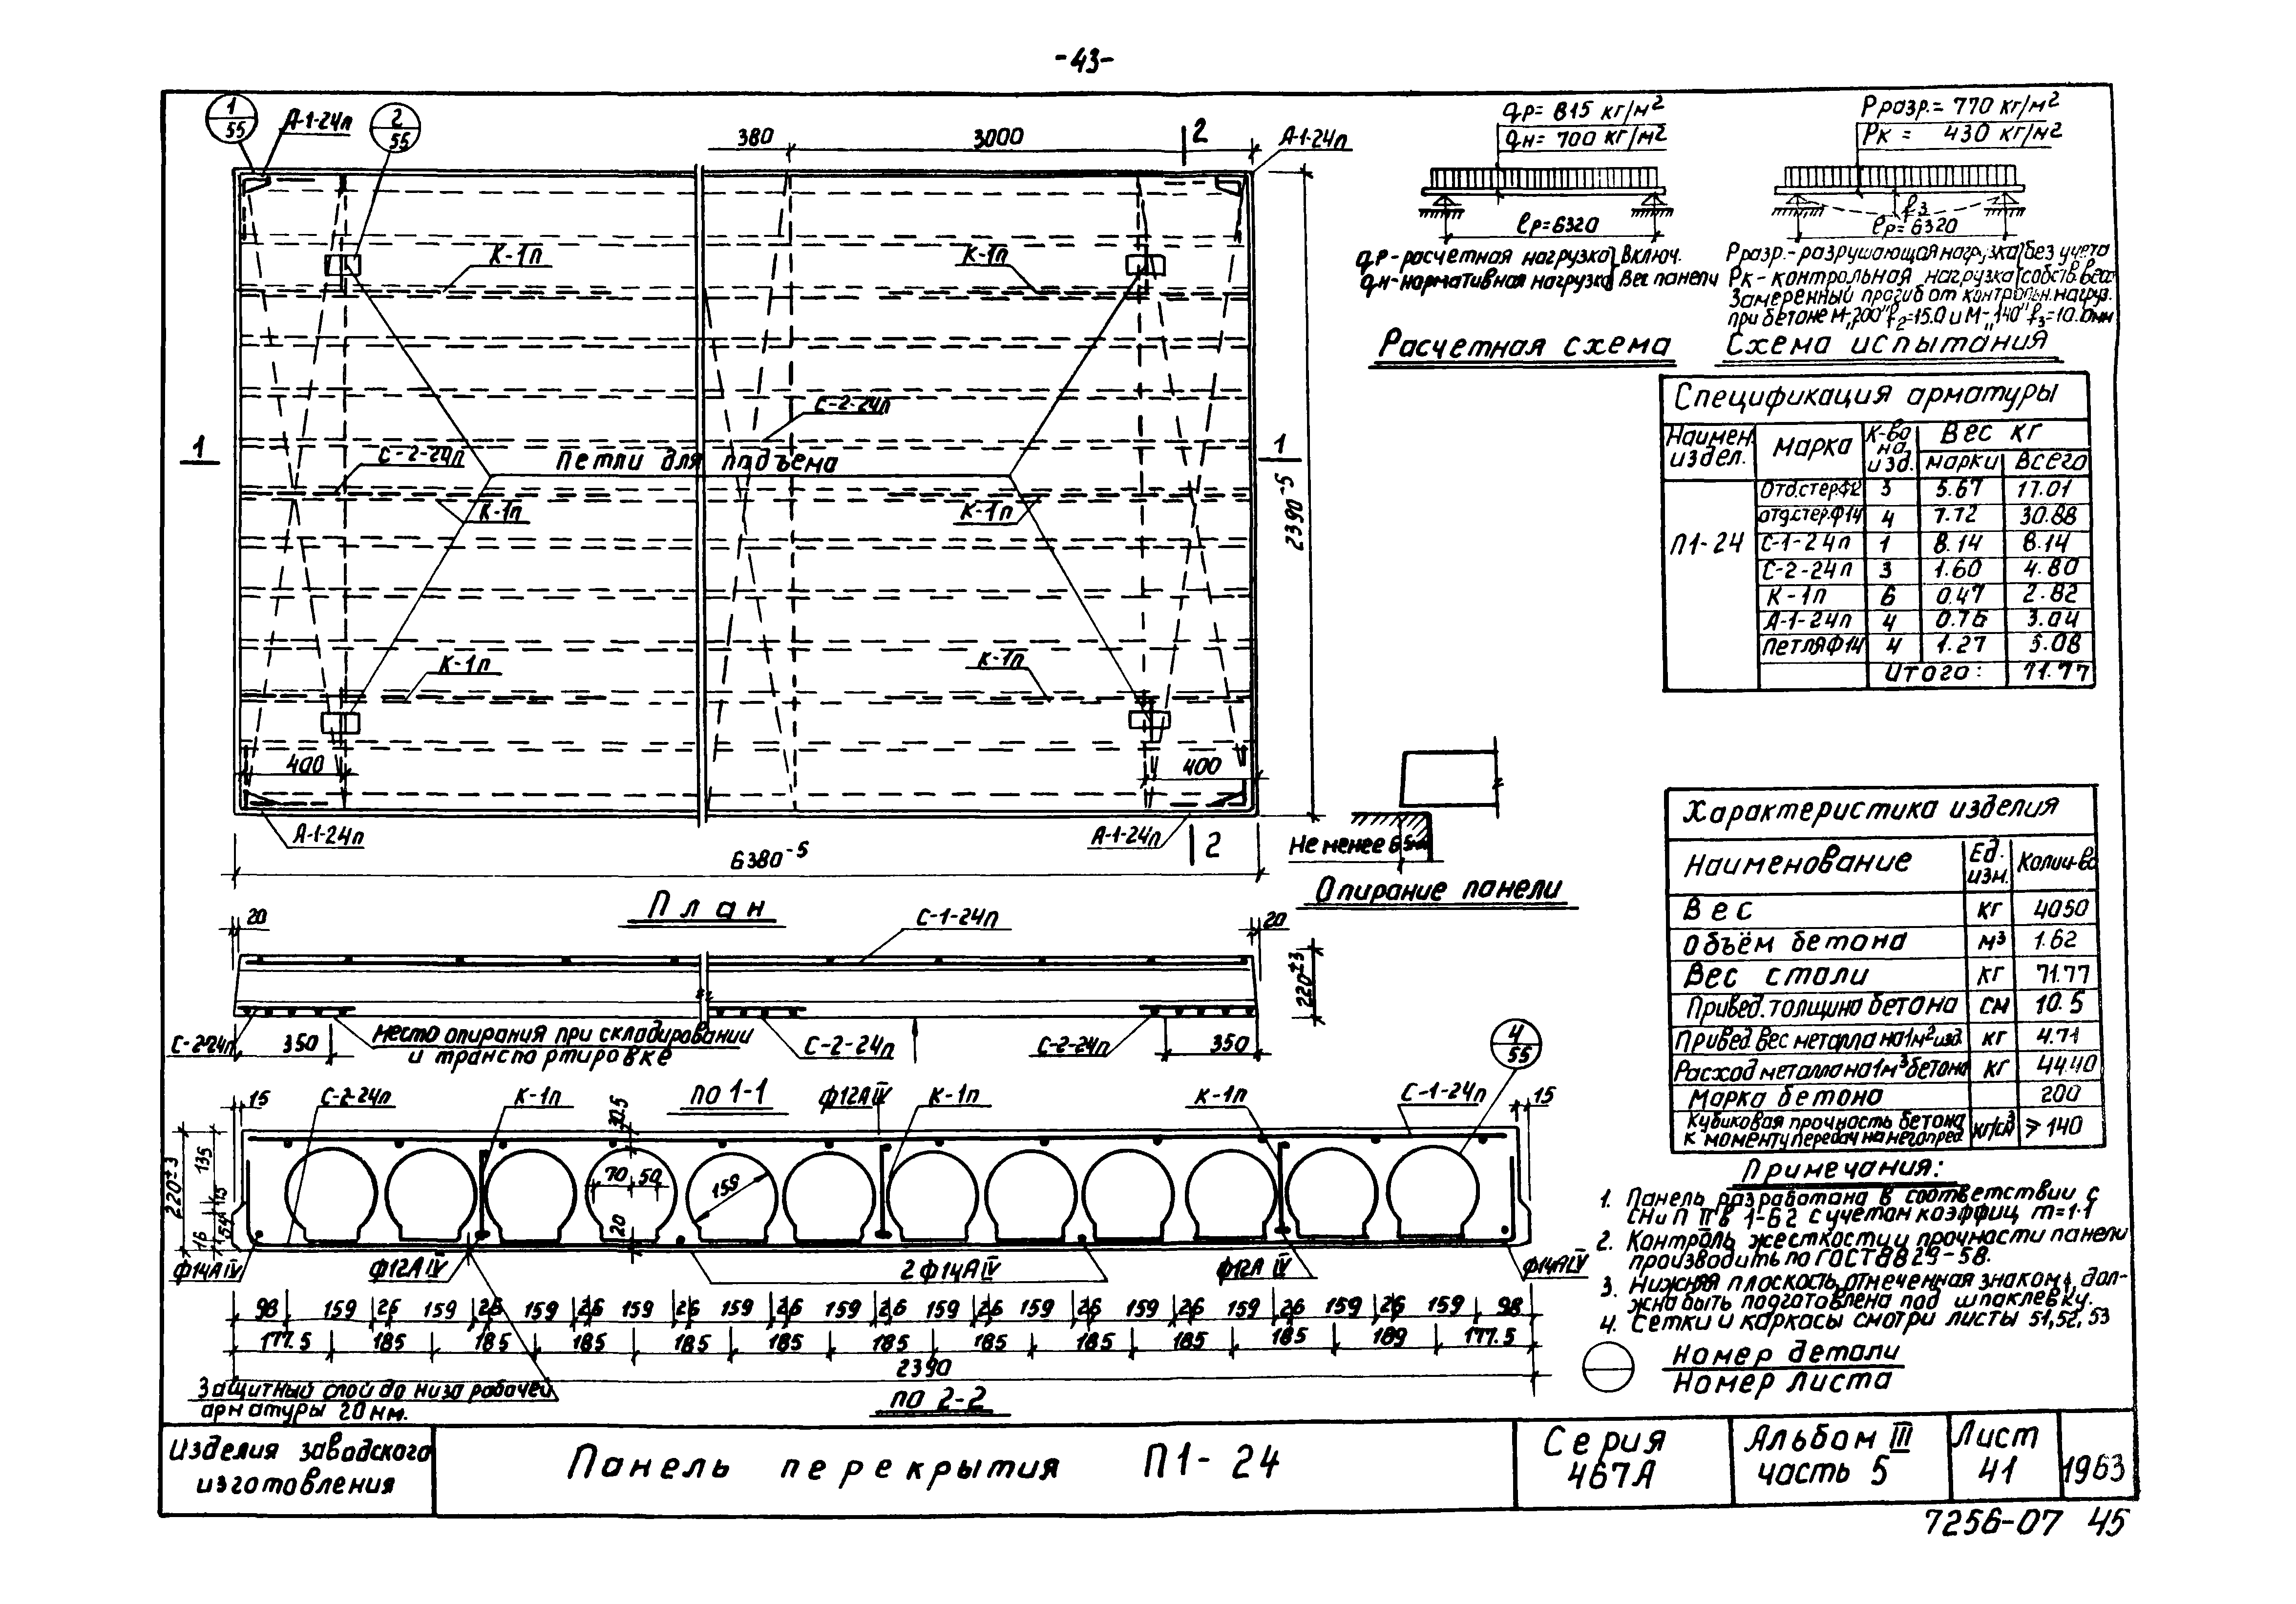 -43-
1
55
А-1-24п
2
55
380
3000
2
А-1-24п
К-1п
К-1п
С-2-24п
1
1
С-2-24п
петли для подъема
К-1п
К-1п
2390-5
К-1п
К-1п
400
400
А-1-24п
А-1-24п
2
6380-5
План
qр= 815 кг/м2
qн= 700 кг/м2
ℓр=6320
qр-расчетная нагрузка } включ.
qн-нормативная нагрузка } вес панели
Расчетная схема
Рразр.= 770 кг/м2
Рк = 430 кг/м2
f3
ℓр=6320
Рразр.-разрушающая нагрузка } без учета
Рк-контрольная нагрузка } собств. веса
Замеренный прогиб от контрольн. нагруз.
при бетоне М-„200" f2=15.0 и М-„140" f3=10.0мм
Схема испытания
Спецификация арматуры
Наимен. издел.
марка
к-во на изд.
Вес кг
марки
всего
П1-24
Отд.стер.ф12 3 5.67 17.01
отд.стер.ф14 4 7.72 30.88
С-1-24п 1 8.14 8.14
С-2-24п 3 1.60 4.80
К-1п 6 0.47 2.82
А-1-24п 4 0.76 3.04
петля ф14 4 1.27 5.08
Итого: 71.77
Не менее 65мм
Опирание панели
Характеристика изделия
Наименование
Ед. изм.
Колич-во
Вес кг 4050
Объём бетона м3 1.62
Вес стали кг 71.77
Привед. толщина бетона см 10.5
Привед. вес металла на 1м2 изд. кг 4.71
Расход металла на 1м3 бетона кг 44.40
Марка бетона 200
Кубиковая прочность бетона
к моменту передач. на него пред. ⩾ 140
20
С-1-24п
20
220±3
С-2-24п
350
место опирания при складировании
и транспортировке
С-2-24п
С-2-24п
350
по 1-1
4
55
15
С-2-24п
К-1п
30.5
ф12АIV
К-1п
К-1п
С-1-24п
15
220±3
135
15
54
16
70
50
159
20
ф14АIV
ф12АIV
2ф14АIV
ф12АIV
ф14АIV
98 159 26 159 26 159 26 159 26 159 26 159 26 159 26 159 26 159 26 159 26 159 26 159 98
177.5 185 185 185 185 185 185 185 185 185 185 189 177.5
2390
Защитный слой до низа рабочей
арматуры 20 мм.
по 2-2
Примечания:
1. Панель разработана в соответствии с
СНиП II в 1-62 с учетом коэффиц. m=1.1
2. Контроль жесткости и прочности панели
производить по ГОСТ 8829-58.
3. Нижняя плоскость, отмеченная знаком ↑, дол-
жна быть подготовлена под шпаклевку.
4. Сетки и каркасы смотри листы 51,52,53
Номер детали
Номер листа
Изделия заводского
изготовления
Панель перекрытия П1-24
Серия
467А
Альбом III
часть 5
Лист
41
1963
7256-07 45